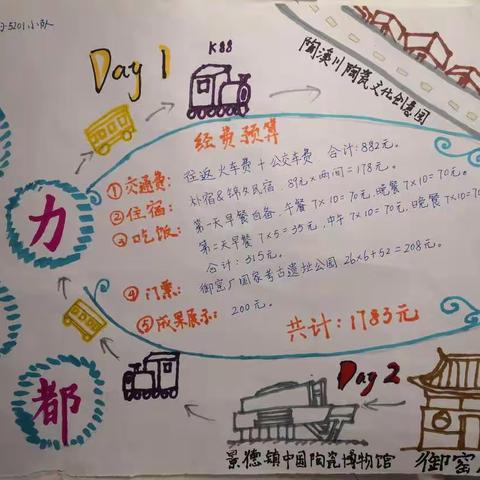 5201小队
Day 1
K88
陶溪川陶瓷文化创意园
经费预算
①交通费: 往返火车费+公交车费 合计:882元。
②住宿: 朴宿&锦夕民宿,89元×两间=178元。
③吃饭: 第一天早餐自备,午餐7×10=70元,晚餐7×10=70元。
第二天早餐7×5=35元,中午7×10=70元,晚餐7×10=70
合计:315元。
④门票: 御窑厂国家考古遗址公园 26×6+52=208元。
⑤成果展示: 200元。
共计:1783元
力
都
Day 2
景德镇中国陶瓷博物馆
御窑